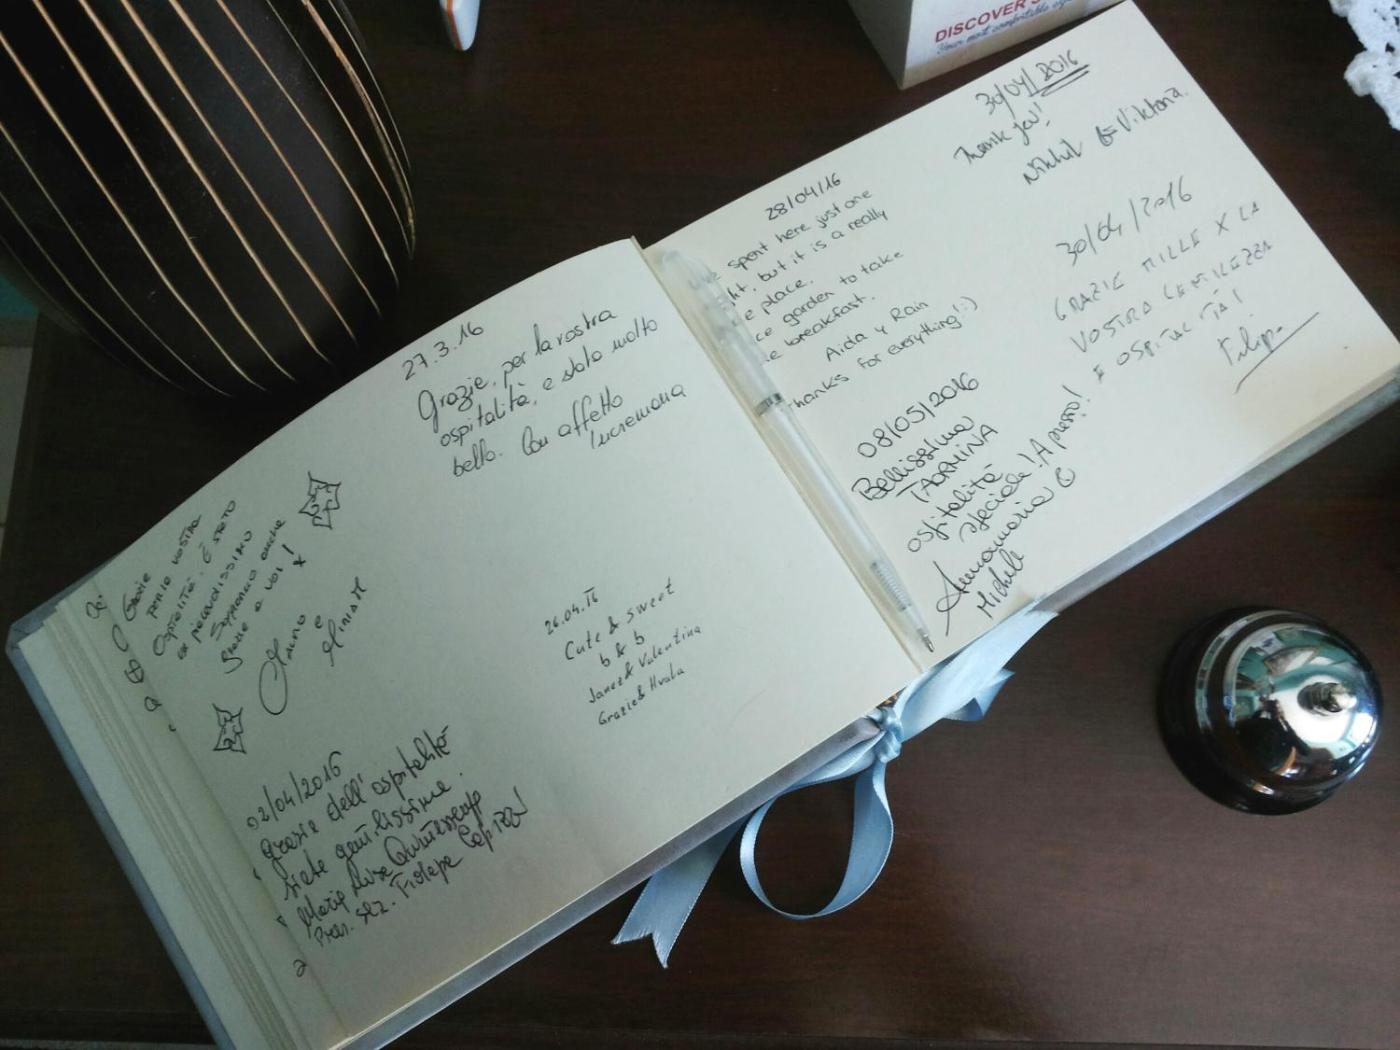 27.3.16
Grazie, per la vostra
ospitalità, è stato molto
bello. Con affetto
Grazie
per la vostra
Ospitalità. È stato
un piacevolissimo
Soggiorno anche
Grazie a voi! x
e
02/04/2016
grazie dell'ospitalità
siete gentilissime.
Maria Luisa
Pres. sez. Fidapa Capizzi
26.04.16
Cute & sweet
b & b
Janez & Valentina
Grazie & Hvala
DISCOVER
Your most comfortable
28/04/16
spent here just one
but it is a really
place.
garden to take
breakfast.
Aida y Rain
Thanks for everything! :)
08/05/2016
Bellissima
TAORMINA
ospitalità
speciale! A presto!
Annamaria e
Michele
30/04/2016
Thank you!
Nikhil & Viktoria
30/04/2016
GRAZIE MILLE X LA
VOSTRA GENTILEZZA
E OSPITALITA!
Filippo